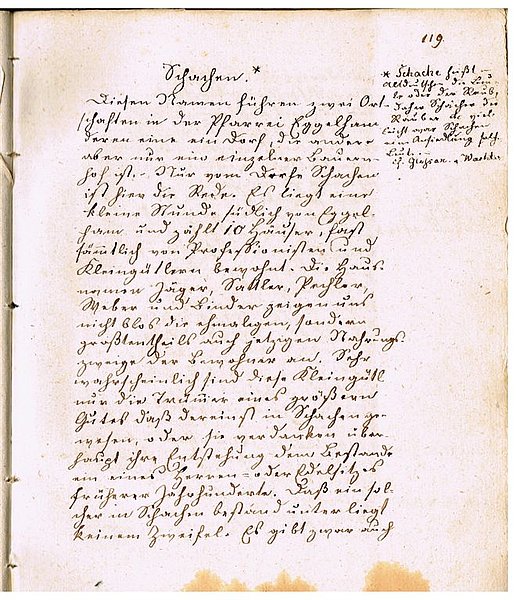 119.
Schachen.*
Diesen Namen führen zwei Ort-
schaften in der Pfarrei Eggelham
deren eine ein Dorf, die andere
aber nur ein einzelner Bauern-
hof ist. - Nur vom Dorfe Schachen
ist hier die Rede. Es liegt eine
kleine Stunde südlich von Eggel-
ham und zählt 10 Häuser, fast
sämmtlich von Professionisten und
Kleingütlern bewohnt. Die Haus-
namen Jäger, Sattler, Pechler,
Weber und Binder zeigen uns
nicht blos die ehmaligen, sondern
großtentheils auch jetzigen Nahrungs-
zweige der Bewohner an. Sehr
wahrscheinlich sind diese Kleingütl
nur die Trümmer eines größern
Gutes daß dereinst in Schachen ge-
wesen, oder sie verdanken über-
haupt ihre Entstehung dem Bestande
ein eines Herren- oder Edelsitzes
früherer Jahrhunderte. Daß ein sol-
cher in Schachen bestand unterliegt
keinem Zweifel. Es gibt zwar auch
* Schache heißt
altdeutschen die
oder der Raub,
daher Schächer der
Räuber
Schachen
eine Ansiedlung